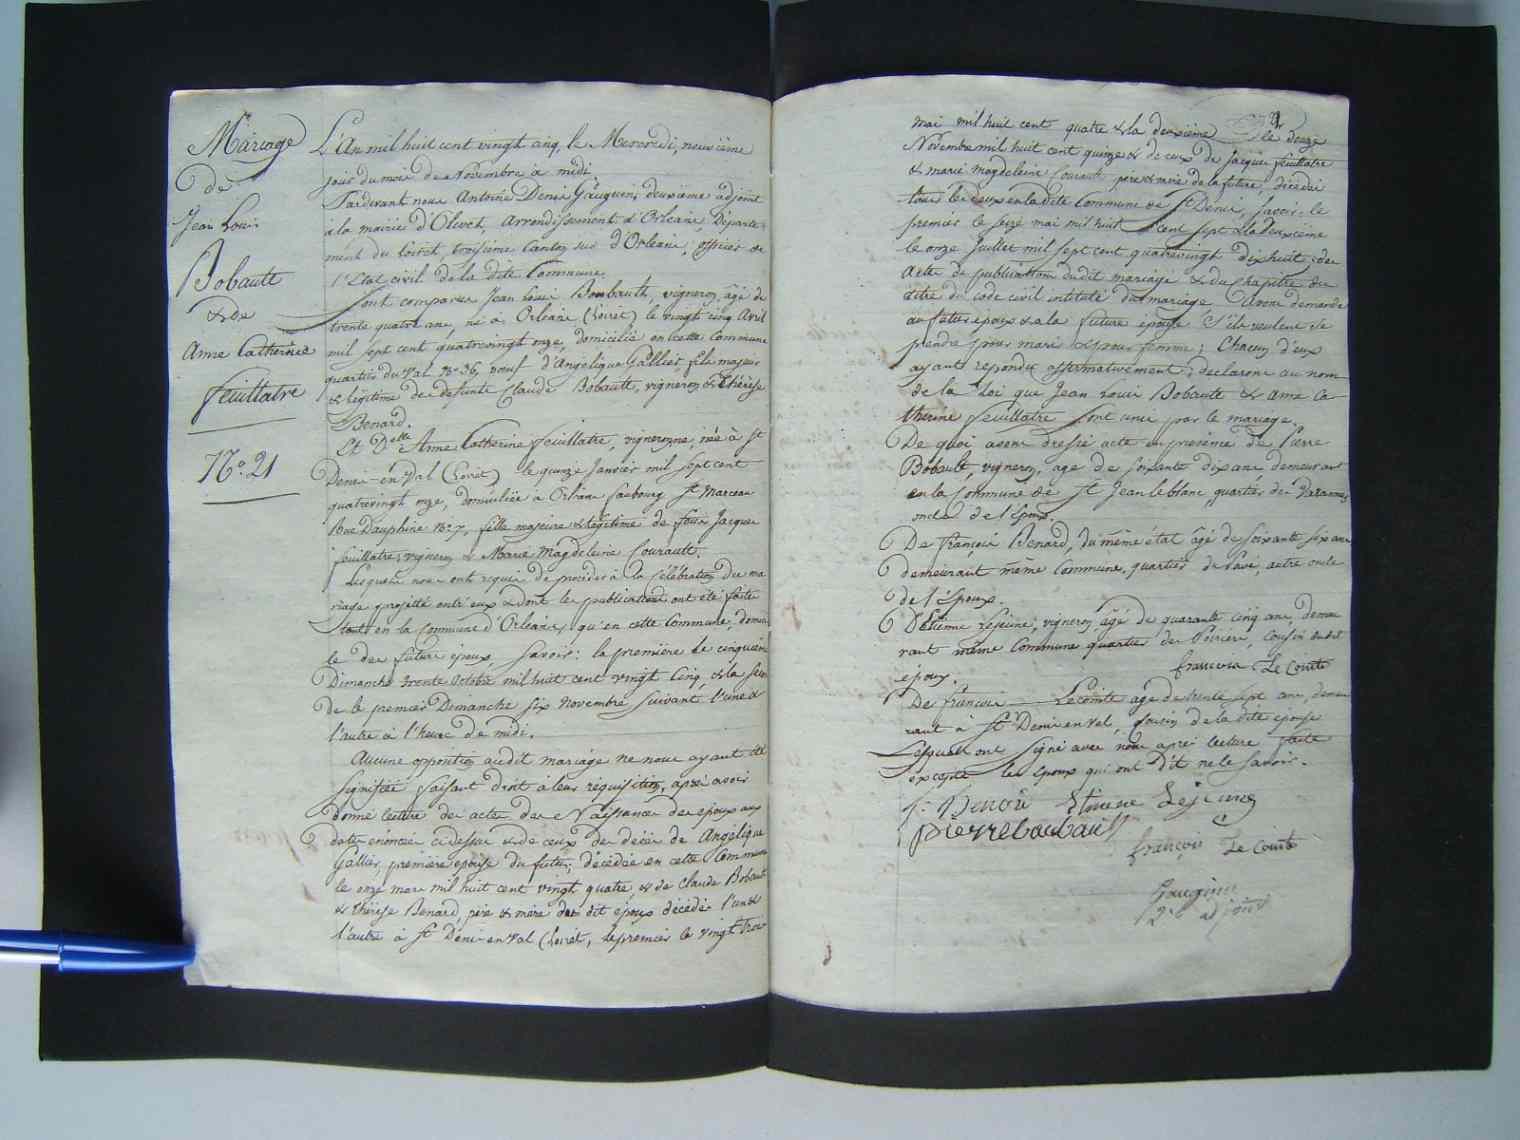 Mariage
de
Jean Louis
Bobault
& de
Anne Catherine
feuillatre
N.º 21
L'An mil huit cent vingt cinq, le Mercredi, neuvième
jour du mois de Novembre à midi.
Pardevant nous Antoine Denis Gauguin, deuxième adjoint
à la mairie d'Olivet, Arrondissement d'Orléans, Départe-
ment du Loiret, troisième Canton sud d'Orléans, officier de
l'Etat civil de la dite Commune.
Sont comparus Jean Louis Bombault, vigneron, âgé de
trente quatre ans, né à Orléans (Loiret) le vingt cinq Avril
mil sept cent quatrevingt onze, domicilié en cette Commune
quartier du Val Nº 36, veuf d'Angélique Gallier, fils majeur
& légitime de defunts Claude Bobault, vigneron & Thérèse
Benard.
Et Delle Anne Catherine feuillatre, vigneronne, née à St
Denis-en-Val (Loiret) le quinze Janvier mil sept cent
quatrevingt onze, domiciliée à Orléans faubourg St Marceau
Rue Dauphine Nº 7, fille majeure & légitime de feux Jacques
feuillatre, vigneron & Marie Magdeleine Courault.
Lesquels nous ont requis de procéder à la célébration du ma
riage projetté entr'eux & dont les publications ont été faites
tant en la Commune d'Orléans, qu'en cette Commune, domici
le des futurs epoux, savoir : la première le cinquième
Dimanche trente Octobre mil huit cent vingt cinq, & la secon
de le premier Dimanche six Novembre suivant l'une &
l'autre à l'heure de midi.
Aucune opposition audit mariage ne nous ayant été
signifiée faisant droit à leur réquisition, après avoir
donné lecture des actes de Naissance des epoux aux
dates énoncées ci dessus & de ceux de décès de Angélique
Gallier, première epouse du futur, décédée en cette Commune
le onze mars mil huit cent vingt quatre, & de Claude Bobault
& Thérèse Benard, père & mère du dit époux décédés l'un &
l'autre à St Denis-en-Val (Loiret, le premier le vingt trois
mai mil huit cent quatre & la deuxième le douze
Novembre mil huit cent quinze & de ceux de Jacques feuillatre
& marie Magdeleine Courault père & mère de la future, décédés
tous les deux en la dite Commune de St Denis, savoir : le
premier le seize mai mil huit cent sept & la deuxième
le onze Juillet mil sept cent quatrevingt dix huit ; de
Acte de publication dudit mariage & du chapitre du
titre du code civil intitulé du mariage Avons demandé
au futur epoux & à la future epouse s'ils veulent se
prendre pour mari & pour femme ; Chacun d'eux
ayant repondu affirmativement ; déclarons au nom
de la Loi que Jean Louis Bobault & Anne Ca
therine feuillatre sont unis par le mariage.
De quoi avons dressé acte en presence de Pierre
Bobault, vigneron, âgé de soixante dix ans demeurant
en la Commune de St Jean le blanc, quartier des Varannes
oncle de l'Epoux.
De françois Benard, du même état âgé de soixante six ans
demeurant même Commune, quartier de Pavé, autre oncle
de l'Epoux.
D'Etienne Lejeune, vigneron âgé de quarante cinq ans, demeu
rant même Commune quartier des Poiriers, cousin du dit
époux.
francois Le Comte
De francois Lecomte âgé de trente sept ans, demeu
rant à St Denis en Val, Cousin de la dite épouse
Lesquels ont signé avec nous après lecture faite
excepté les époux qui ont dit ne le savoir.
f. Benois Etienne Lejeune
pierre baubault
françois Le Comte
Gauguin
2e adjoint